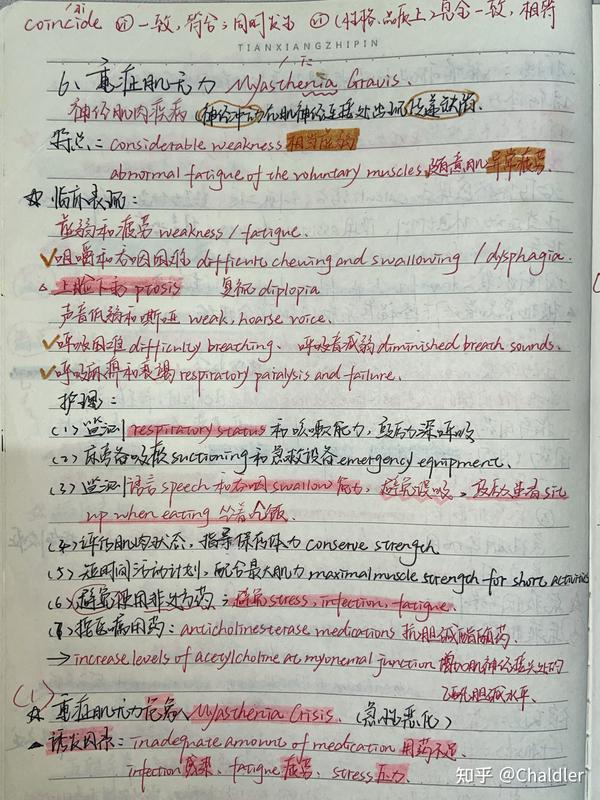 coincide vi 一致,符合;同时发生 vi (性格、品质上)完全一致,相符
TIANXIANGZHIPIN
6、重症肌无力 Myasthenia Gravis.
神经肌肉疾病 神经冲动在肌神经连接处出现传递缺陷.
特点: considerable weakness 相当虚弱
abnormal fatigue of the voluntary muscles 随意肌异常疲劳
☆ 临床表现:
虚弱和疲劳 weakness / fatigue.
✓咀嚼和吞咽困难 difficult chewing and swallowing / dysphagia.
△ 上睑下垂 ptosis 复视 diplopia
声音低弱和嘶哑 weak, hoarse voice.
✓呼吸困难 difficulty breathing、呼吸音减弱 diminished breath sounds.
✓呼吸麻痹和衰竭 respiratory paralysis and failure.
护理:
(1) 监测 respiratory status 和咳嗽能力,鼓励深呼吸
(2) 床旁备吸痰 suctioning 和急救设备 emergency equipment.
(3) 监测语言 speech 和吞咽 swallow 能力,避免误吸,鼓励患者 sit
up when eating 坐着吃饭.
(4) 评估肌肉状态,指导保存体力 conserve strength
(5) 短时间活动计划,配合最大肌力 maximal muscle strength for short activities
(6) 避免使用非处方药;避免 stress, infection, fatigue.
(7) 按医嘱用药: anticholinesterase medications 抗胆碱酯酶药
→ increase levels of acetylcholine at myonemal junction 增加肌神经接头处的
乙酰胆碱水平.
(1)
☆ 重症肌无力危象 Myasthenia Crisis. (急性恶化)
▲ 诱发因素: inadequate amount of medication 用药不足.
infection 感染、fatigue 疲劳、stress 压力.
知乎 @Chaldler